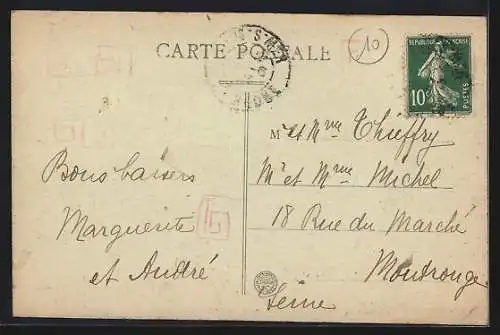 CARTE POSTALE
10
REPUBLIQUE FRANÇAISE
10c
POSTES
Bons baisers
Marguerite
et André
M et Mme Thieffry
Mr et Mme Michel
18 Rue du Marché
Montrouge
Seine